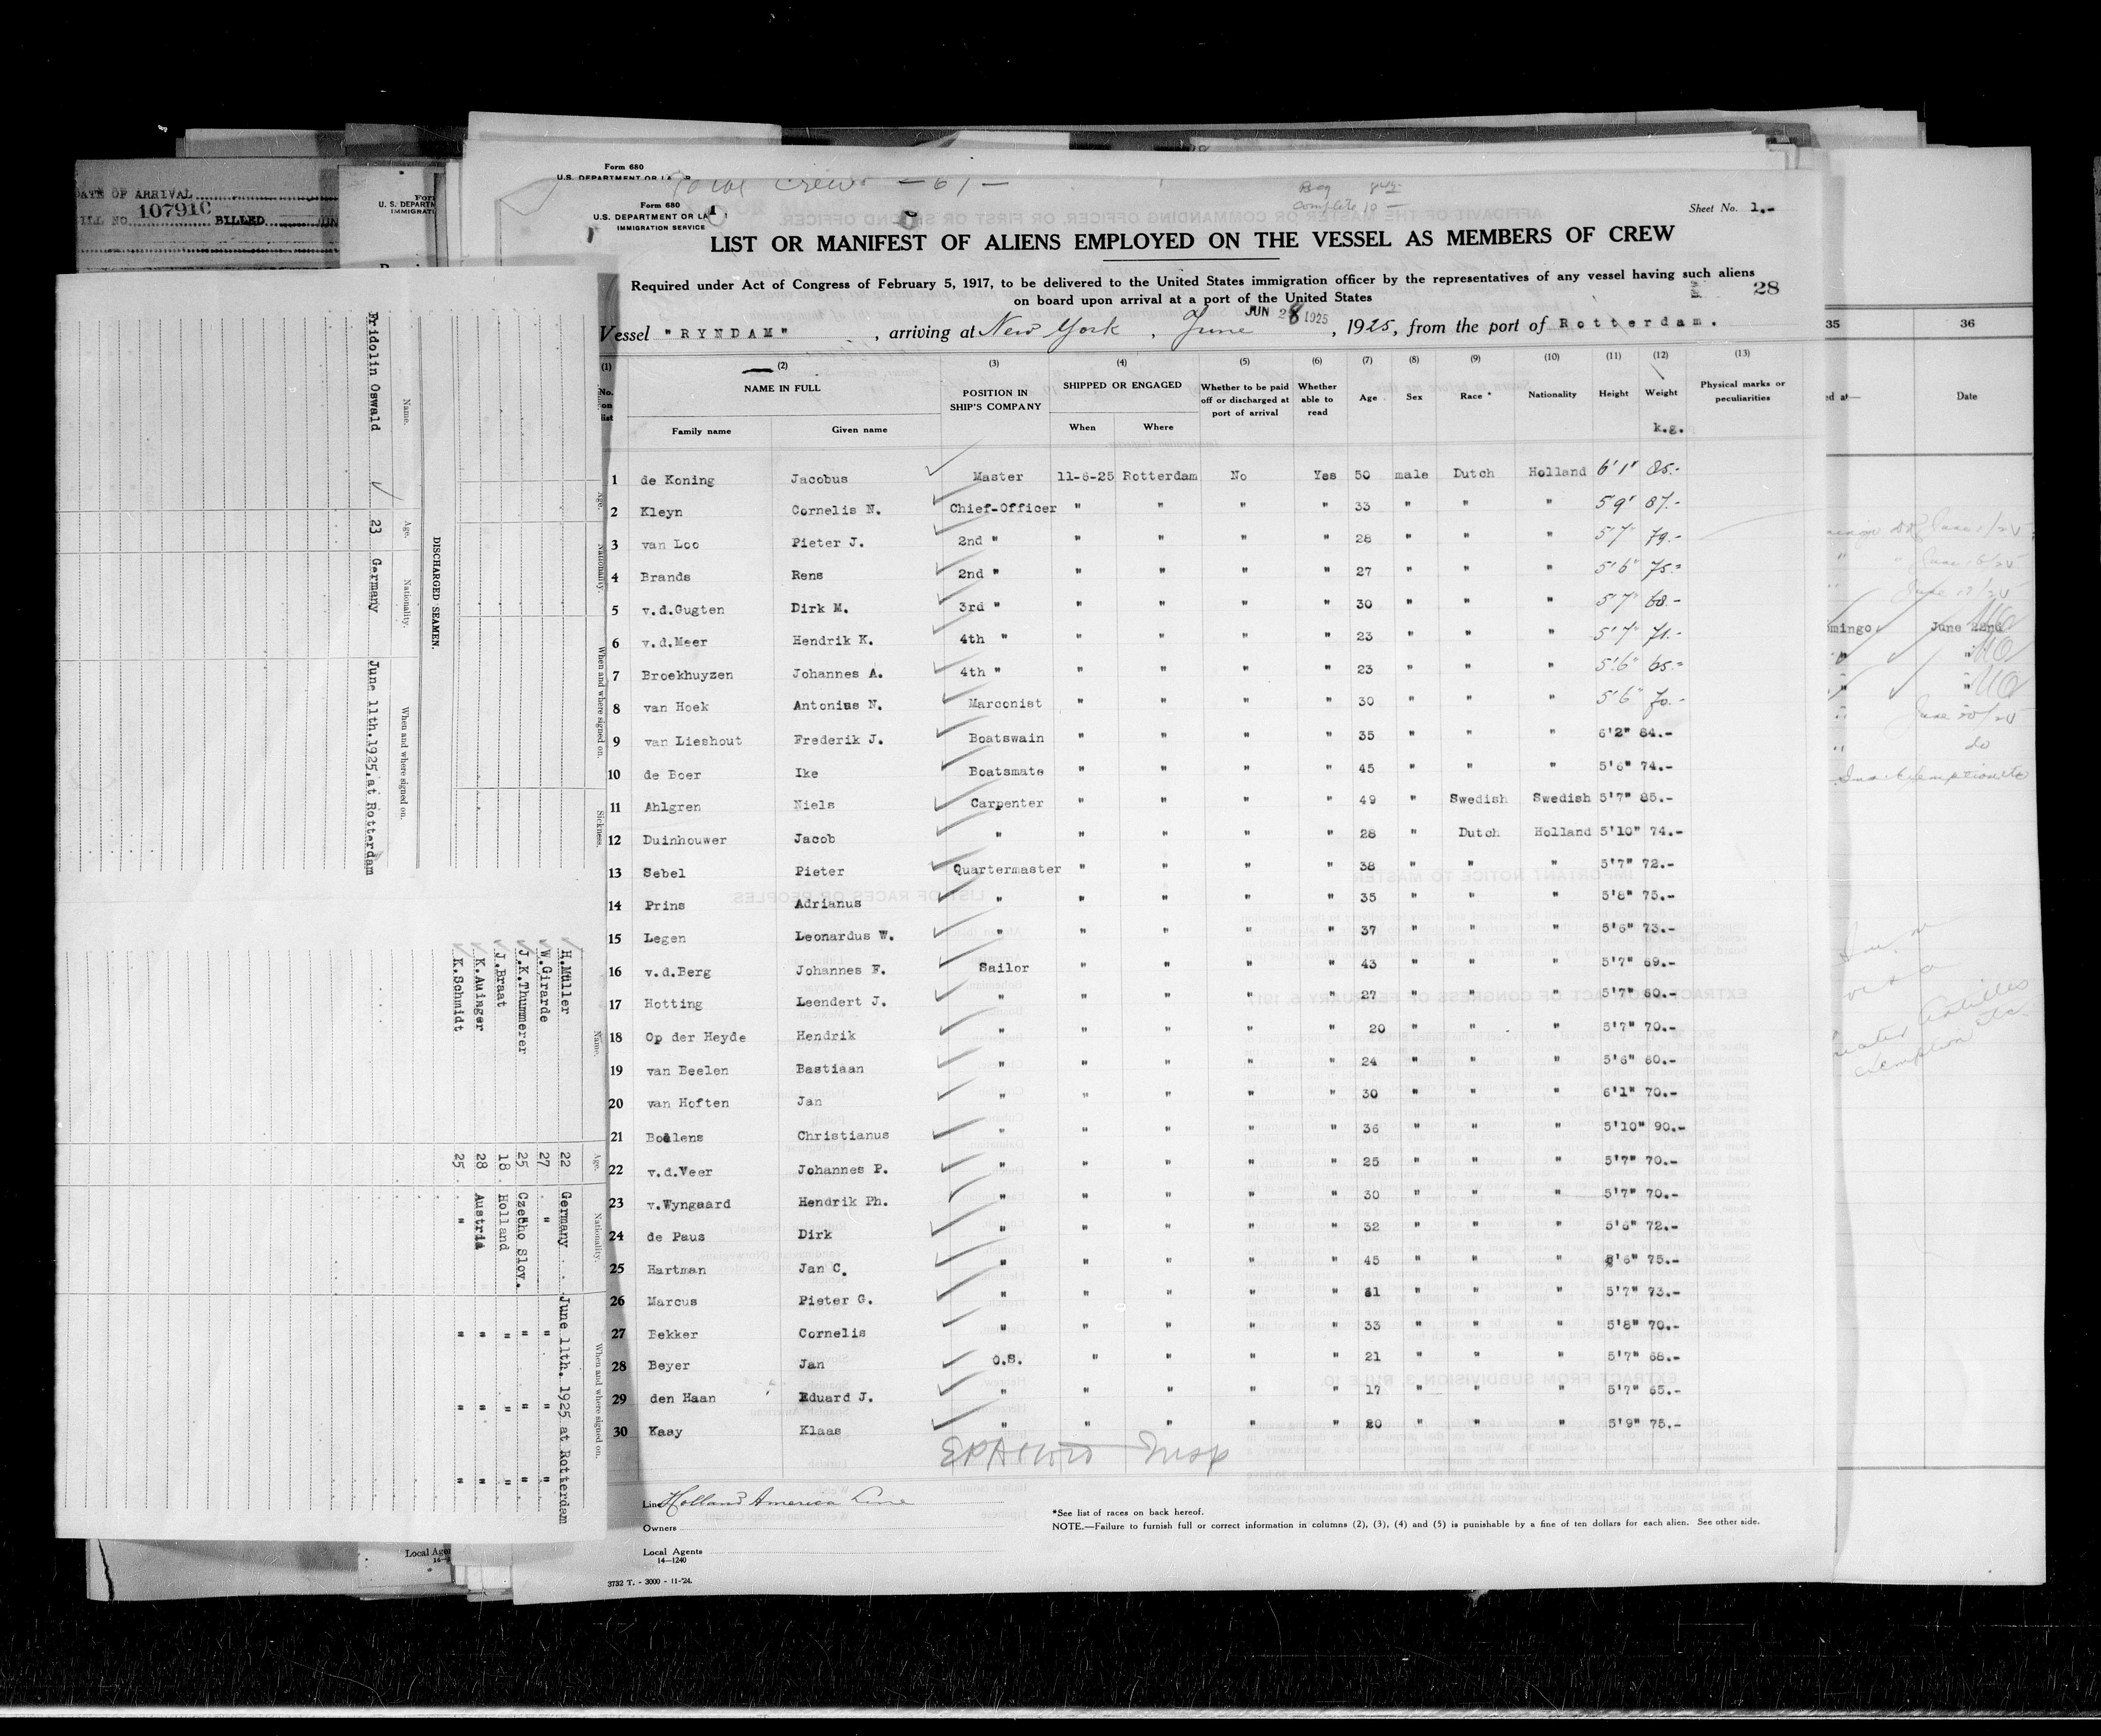 DATE OF ARRIVAL
BILL NO. 107910 BILLED
Form 680
Form 680
U.S. DEPARTMENT OF LABOR
IMMIGRATION SERVICE
Total Crew - 61 -
Sheet No. 1.-
LIST OR MANIFEST OF ALIENS EMPLOYED ON THE VESSEL AS MEMBERS OF CREW
Required under Act of Congress of February 5, 1917, to be delivered to the United States immigration officer by the representatives of any vessel having such aliens
on board upon arrival at a port of the United States
28
JUN 28 1925
Vessel "RYNDAM", arriving at New York, June, 1925, from the port of Rotterdam.
(1) (2) (3) (4) (5) (6) (7) (8) (9) (10) (11) (12) (13)
No. on list NAME IN FULL POSITION IN SHIP'S COMPANY SHIPPED OR ENGAGED Whether to be paid off or discharged at port of arrival Whether able to read Age Sex Race * Nationality Height Weight Physical marks or peculiarities
Family name Given name When Where k.g.
1 de Koning Jacobus Master 11-6-25 Rotterdam No Yes 50 male Dutch Holland 6'1" 85.-
2 Kleyn Cornelis N. Chief-Officer " " " " 33 " " " 5'9" 87.-
3 van Loo Pieter J. 2nd " " " " " 28 " " " 5'7" 79.-
4 Brands Rens 2nd " " " " " 27 " " " 5'6" 75.-
5 v.d.Gugten Dirk M. 3rd " " " " " 30 " " " 5'7" 68.-
6 v.d.Meer Hendrik K. 4th " " " " " 23 " " " 5'7" 71.-
7 Broekhuyzen Johannes A. 4th " " " " " 23 " " " 5'6" 65.-
8 van Hoek Antonius N. Marconist " " " " 30 " " " 5'6" 70.-
9 van Lieshout Frederik J. Boatswain " " " " 35 " " " 6'2" 84.-
10 de Boer Ike Boatsmate " " " " 45 " " " 5'6" 74.-
11 Ahlgren Niels Carpenter " " " " 49 " Swedish Swedish 5'7" 85.-
12 Duinhouwer Jacob " " " " " 28 " Dutch Holland 5'10" 74.-
13 Sebel Pieter Quartermaster " " " " 38 " " " 5'7" 72.-
14 Prins Adrianus " " " " " 35 " " " 5'8" 75.-
15 Legen Leonardus W. " " " " " 37 " " " 5'6" 73.-
16 v.d.Berg Johannes F. Sailor " " " " 43 " " " 5'7" 69.-
17 Hotting Leendert J. " " " " " 27 " " " 5'7" 60.-
18 Op der Heyde Hendrik " " " " " 20 " " " 5'7" 70.-
19 van Beelen Bastiaan " " " " " 24 " " " 5'6" 60.-
20 van Hoften Jan " " " " " 30 " " " 6'1" 70.-
21 Boelens Christianus " " " " " 36 " " " 5'10" 90.-
22 v.d.Veer Johannes P. " " " " " 25 " " " 5'7" 70.-
23 v.Wyngaard Hendrik Ph. " " " " " 30 " " " 5'7" 70.-
24 de Paus Dirk " " " " " 32 " " " 5'6" 72.-
25 Hartman Jan C. " " " " " 45 " " " 5'6" 75.-
26 Marcus Pieter G. " " " " " " " " 5'7" 73.-
27 Bekker Cornelis " " " " " 33 " " " 5'8" 70.-
28 Beyer Jan O.S. " " " " 21 " " " 5'7" 68.-
29 den Haan Eduard J. " " " " " 17 " " " 5'7" 65.-
30 Kaay Klaas " " " " " 20 " " " 5'9" 75.-
Line Holland America Line
Owners
Local Agents
14—1240
3732 T. - 3000 - 11-'24.
*See list of races on back hereof.
NOTE.—Failure to furnish full or correct information in columns (2), (3), (4) and (5) is punishable by a fine of ten dollars for each alien. See other side.
DISCHARGED SEAMEN.
Name. Age. Nationality. When and where signed on.
Fridolin Oswald 23 Germany June 11th.1925,at Rotterdam
Age. Nationality. When and where signed on. Sickness.
Name. Age. Nationality. When and where signed on.
H.Müller 22 Germany June 11th. 1925 at Rotterdam
W.Girarde 27 " " " "
J.K.Thummerer 25 Czecho Slov. " " "
J.Braat 18 Holland " " "
K.Auinger 28 Austria " " "
K.Schmidt 25 " " " "
35 36
ed at— Date
mingo June 22nd
" "
" "
do